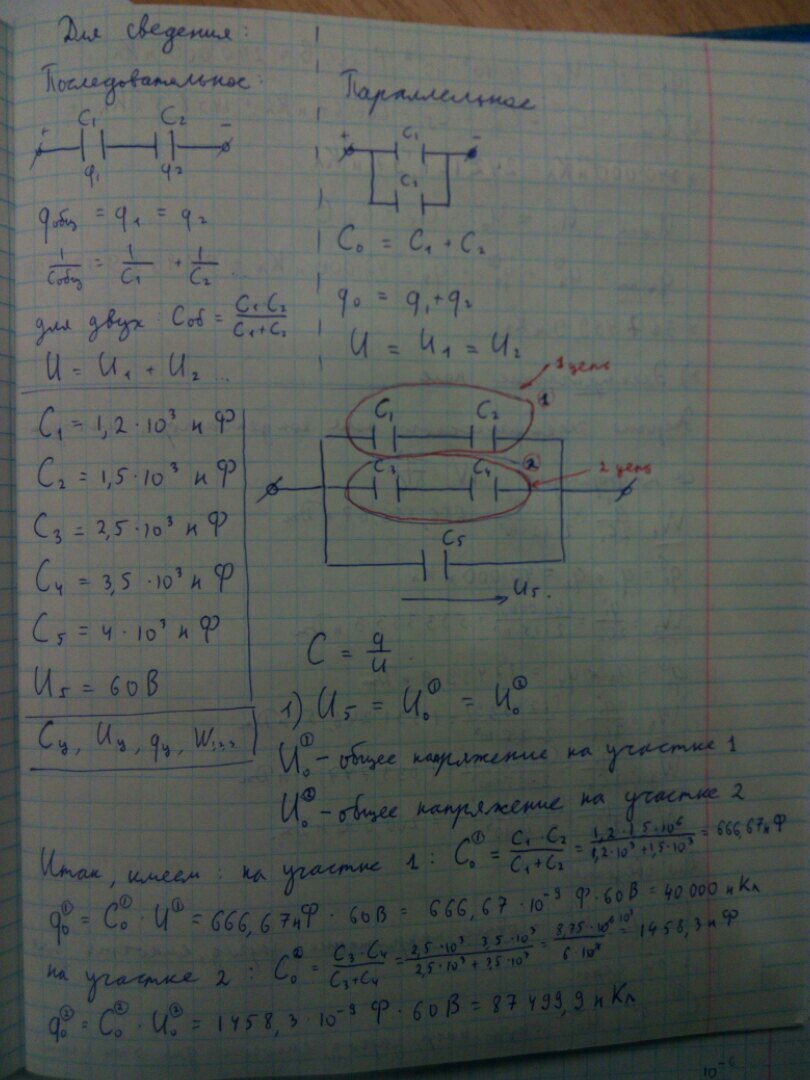 Для сведения:
Последовательное:
C₁ C₂
+ −
q₁ q₂
qобщ = q₁ = q₂
1/Cобщ = 1/C₁ + 1/C₂ ...
для двух: Cоб = C₁C₂/(C₁+C₂)
U = U₁ + U₂ ...
Параллельное
+ C₁ −
C₂
C₀ = C₁ + C₂
q₀ = q₁+q₂
U = U₁ = U₂
C₁ = 1,2·10³ нФ
C₂ = 1,5·10³ нФ
C₃ = 2,5·10³ нФ
C₄ = 3,5·10³ нФ
C₅ = 4·10³ нФ
U₅ = 60В
Cц, Uц, qц, W
1 цепь
C₁ C₂ ①
C₃ C₄ ②
2 цепь
C₅
U₅.
C = q/U
1) U₅ = U₀① = U₀②
U₀① - общее напряжение на участке 1
U₀② - общее напряжение на участке 2
Итак, имеем: на участке 1: C₀① = C₁·C₂/(C₁+C₂) = 1,2·1,5·10⁶/(1,2·10³+1,5·10³) = 666,67нФ
q₀① = C₀①·U① = 666,67нФ · 60В = 666,67·10⁻⁹ Ф·60В = 40 000 нКл
на участке 2: C₀② = C₃·C₄/(C₃+C₄) = 2,5·10³·3,5·10³/(2,5·10³+3,5·10³) = 8,75·10⁶/6·10³ = 1458,3 нФ
q₀② = C₀②·U₀② = 1458,3·10⁻⁹ Ф·60В = 87499,9 нКл